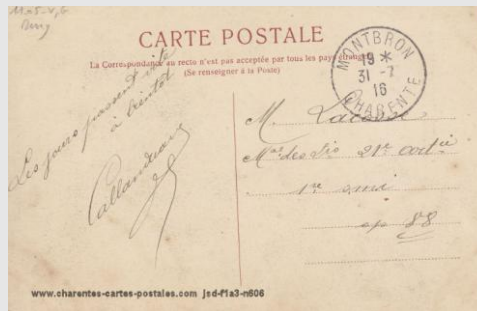 CARTE POSTALE
La Correspondance au recto n'est pas acceptée par tous les pays étrangers
(Se renseigner à la Poste)
MONTBRON
19 *
31 - 7
16
CHARENTE
Les jours passent vite
à bientôt
M.
Mal des Lis 21e artie
1re
cp 88
www.charentes-cartes-postales.com jsd-f1a3-n606